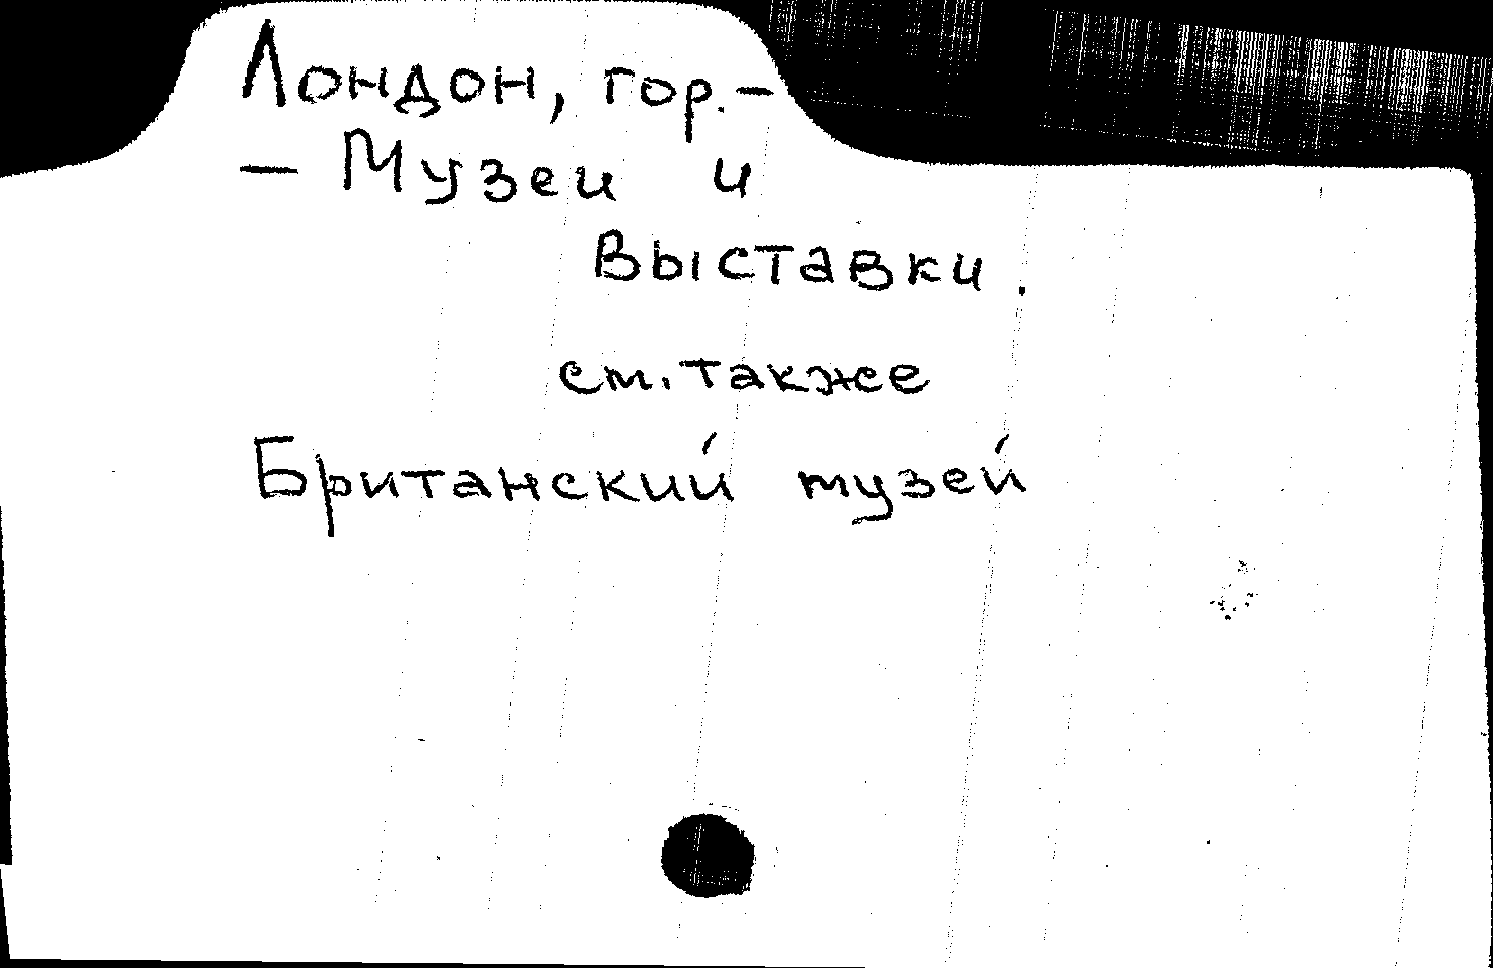 Лондон, гор. –
– Музеи и
выставки.
см. также
Британский музей